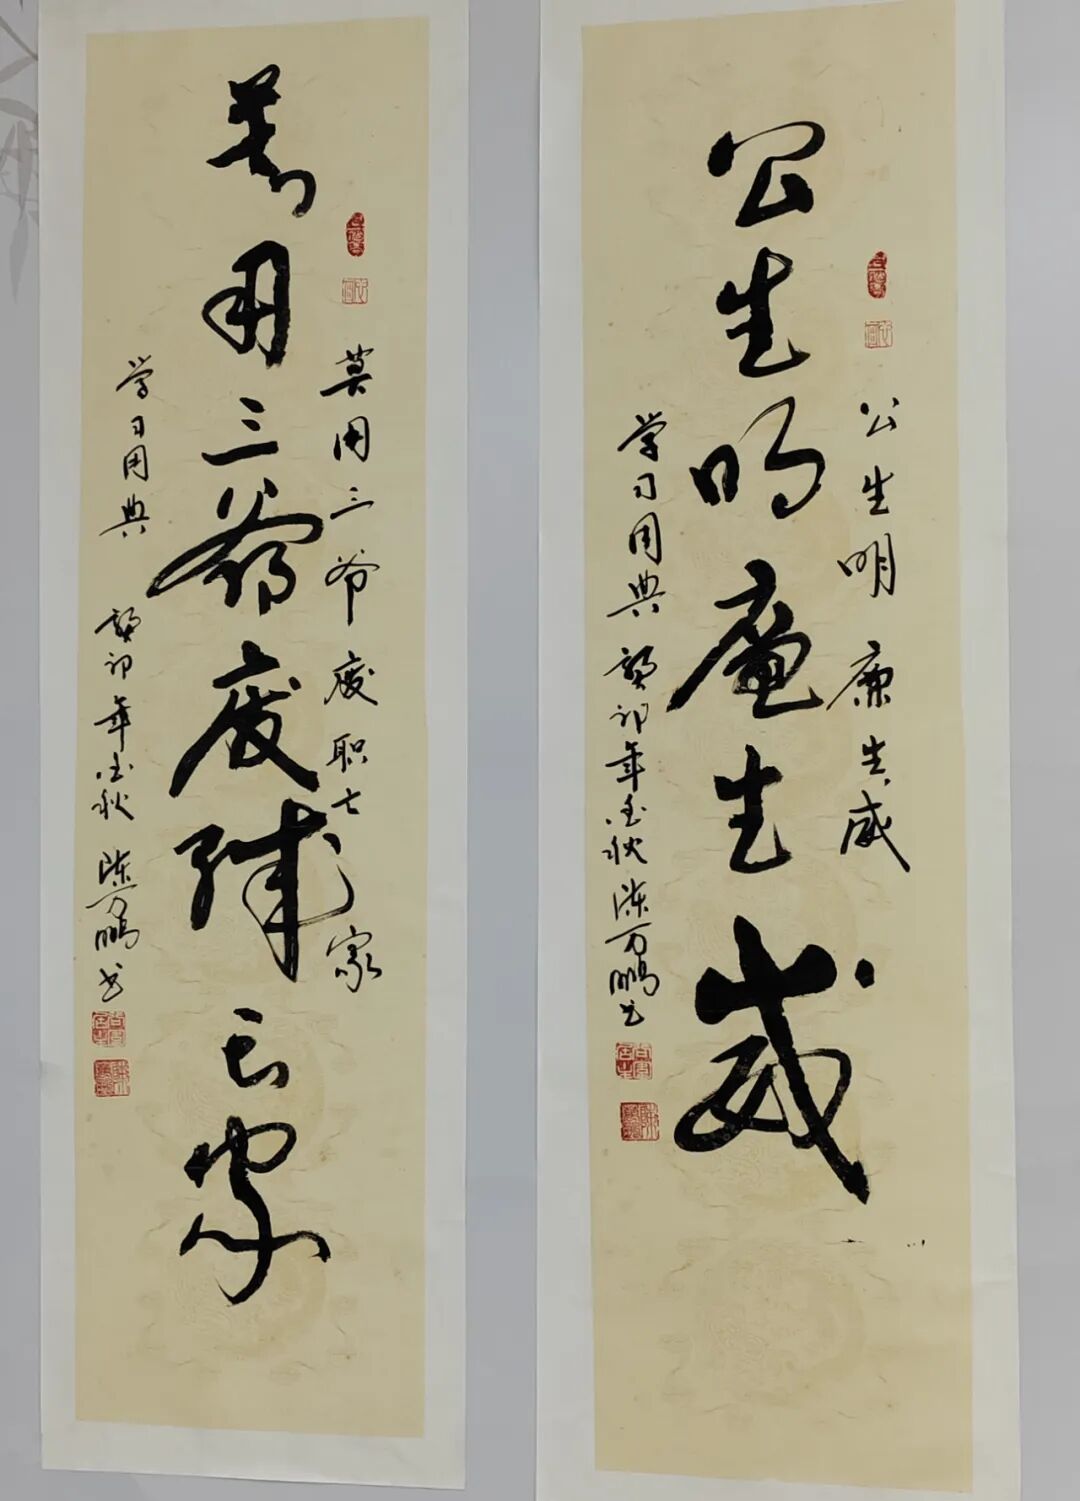 公生明廉生威
公生明廉生威
学习用典 癸卯年金秋 陈万鹏书
莫用三爷废职亡家
莫用三爷废职亡家
学习用典 癸卯年金秋 陈万鹏书